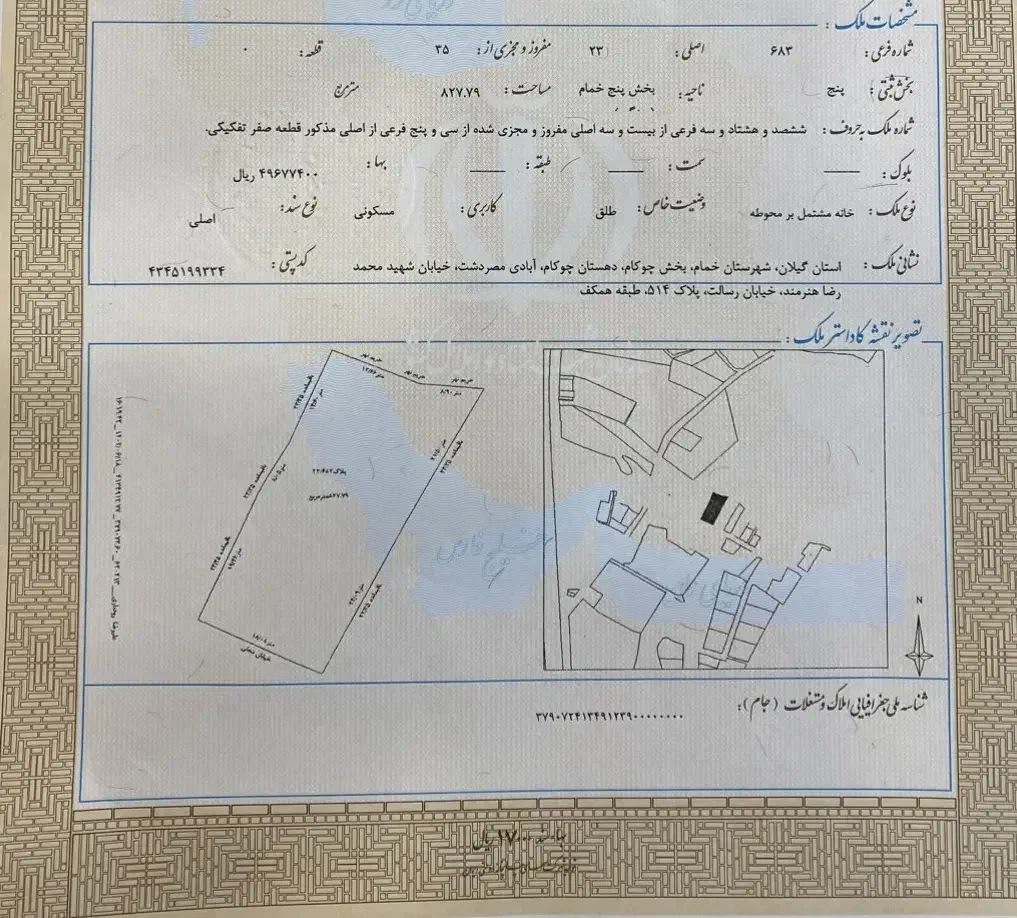 مشخصات ملک :
شماره فرعی : ۶۸۳ اصلی : ۲۳ مفروز و مجزی از : ۳۵ قطعه : ۰
بخش ثبتی : پنج ناحیه : بخش پنج خمام مساحت : ۸۲۷.۷۹ مترمربع
شماره ملک به حروف : ششصد و هشتاد و سه فرعی از بیست و سه اصلی مفروز و مجزی شده از سی و پنج فرعی از اصلی مذکور قطعه صفر تفکیکی.
بلوک : سمت : طبقه : بها : ۴۹۶۷۷۴۰۰ ریال
نوع ملک : خانه مشتمل بر محوطه وضعیت خاص : طلق کاربری : مسکونی نوع سند : اصلی
نشانی ملک : استان گیلان، شهرستان خمام، بخش چوکام، دهستان چوکام، آبادی مصردشت، خیابان شهید محمد کدپستی : ۴۳۴۵۱۹۹۳۳۴
رضا هنرمند، خیابان رسالت، پلاک ۵۱۴، طبقه همکف
تصویر نقشه کاداستر ملک :
خلیج فارس
خیابان محلی
N
شناسه ملی جغرافیایی املاک و مستغلات (جام) :
۳۷۹۰۷۲۴۱۳۴۹۱۲۳۹۰۰۰۰۰۰۰۰
بهاء سند ۱۷۰۰۰ ریال